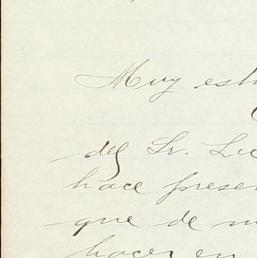 Muy est
del Sr. Lic
hace presen
que de m
hacer en